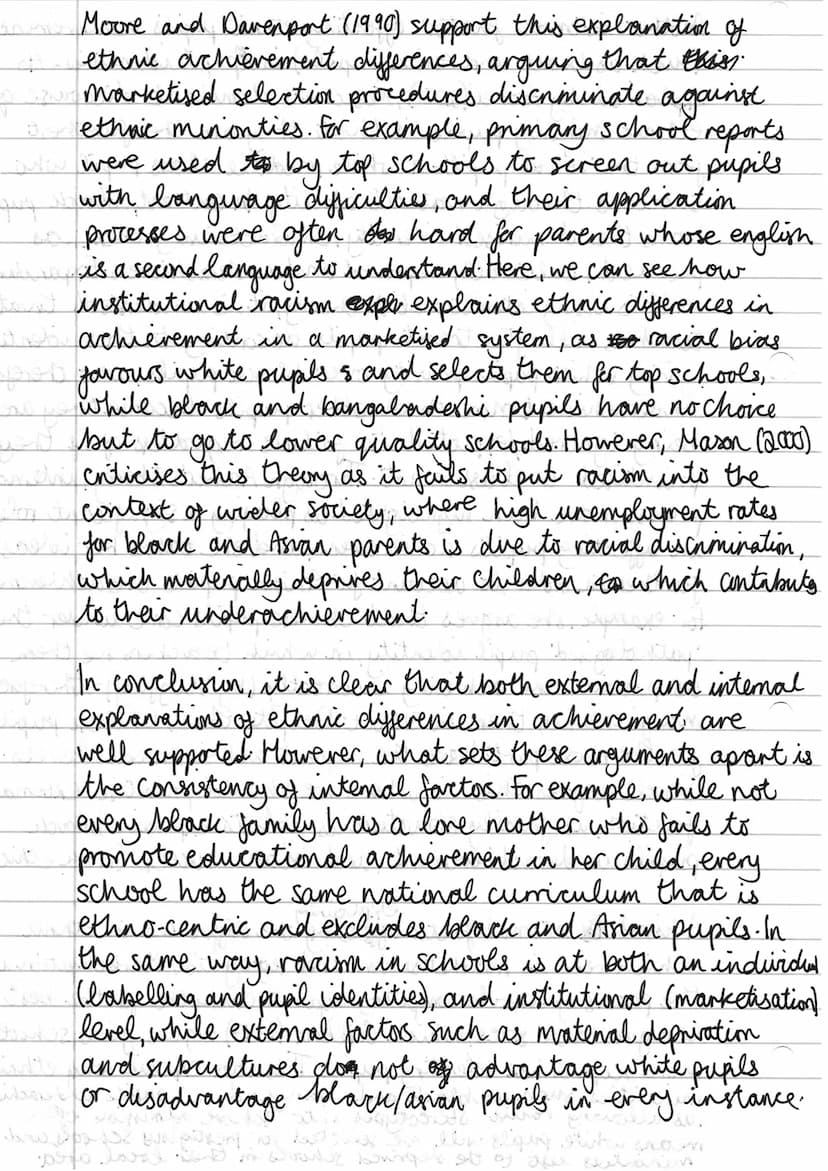 Moore and Davenport (1990) support this explanation of
ethnic achievement differences, arguing that this
marketised selection procedures discriminate against
ethnic minorities. For example, primary school reports
were used to by top schools to screen out pupils
with language difficulties, and their application
processes were often hard for parents whose english
is a second language to understand. Here, we can see how
institutional racism expl explains ethnic differences in
achievement in a marketised system, as racial bias
favours white pupils s and selects them for top schools,
while black and bangaladeshi pupils have no choice
but to go to lower quality schools. However, Mason (2000)
criticises this theory as it fails to put racism into the
context of wider society, where high unemployment rates
for black and Asian parents is due to racial discrimination,
which materially deprives their children, to which contributes
to their underachievement.
In conclusion, it is clear that both external and internal
explanations of ethnic differences in achievement are
well supported. However, what sets these arguments apart is
the consistency of internal factors. For example, while not
every black family has a lone mother who fails to
promote educational achievement in her child, every
school has the same national curriculum that is
ethno-centric and excludes black and Asian pupils. In
the same way, racism in schools is at both an individual
(labelling and pupil identities), and institutional (marketisation)
level, while external factors such as material deprivation
and subcultures do not advantage white pupils
or disadvantage black/asian pupils in every instance.